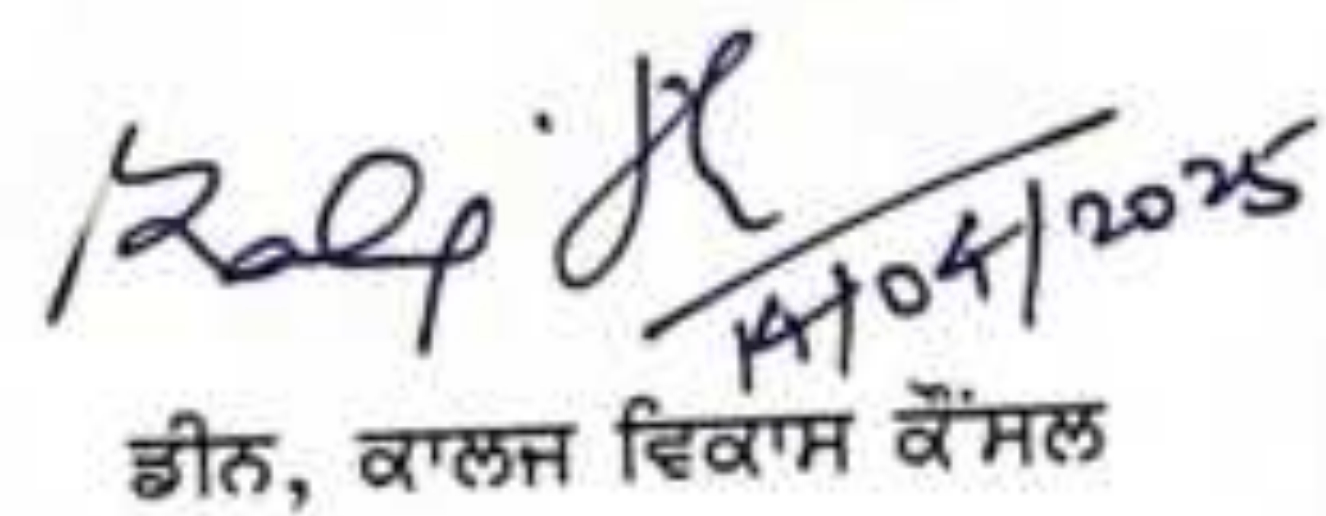 14/04/2025
ਡੀਨ, ਕਾਲਜ ਵਿਕਾਸ ਕੌਂਸਲ